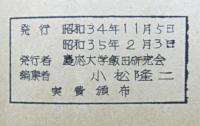 発行 昭和34年11月5日
昭和35年2月3日
発行者 慶応大学飯田研究会
編集者 小松隆二
実費頒布